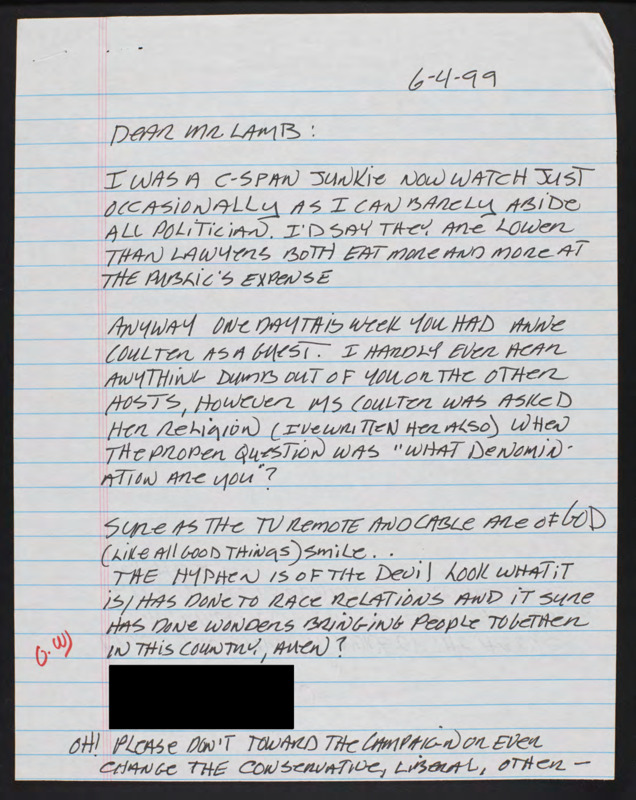 6-4-99
DEAR MR LAMB:
I WAS A C-SPAN JUNKIE NOW WATCH JUST
OCCASIONALLY AS I CAN BARELY ABIDE
ALL POLITICIAN. I'D SAY THEY ARE LOWER
THAN LAWYERS BOTH EAT MORE AND MORE AT
THE PUBLIC'S EXPENSE
ANYWAY ONE DAY THIS WEEK YOU HAD ANNE
COULTER AS A GUEST. I HARDLY EVER HEAR
ANYTHING DUMB OUT OF YOU OR THE OTHER
HOSTS, HOWEVER MS COULTER WAS ASKED
HER RELIGION (I'VE WRITTEN HER ALSO) WHEN
THE PROPER QUESTION WAS "WHAT DENOMIN-
ATION ARE YOU"?
SURE AS THE TV REMOTE AND CABLE ARE OF GOD
(LIKE ALL GOOD THINGS) SMILE..
THE HYPHEN IS OF THE DEVIL LOOK WHAT IT
IS/HAS DONE TO RACE RELATIONS AND IT SURE
HAS DONE WONDERS BRINGING PEOPLE TOGETHER
IN THIS COUNTRY, AHEN?
OH! PLEASE DON'T TOWARD THE CAMPAIGN OR EVER
CHANGE THE CONSERVATIVE, LIBERAL, OTHER –